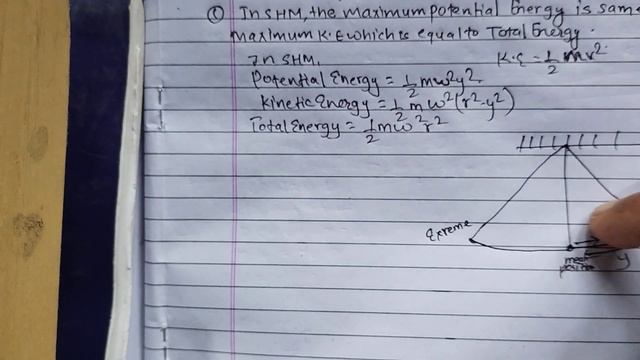 © In SHM, the maximum potential Energy is same
maximum K.E which is equal to Total Energy.
In SHM,
K.E = 1/2 mv²
Potential Energy = 1/2 mω²y²
Kinetic Energy = 1/2 mω²(r²-y²)
Total Energy = 1/2 mω²r²
Extreme
mean
y